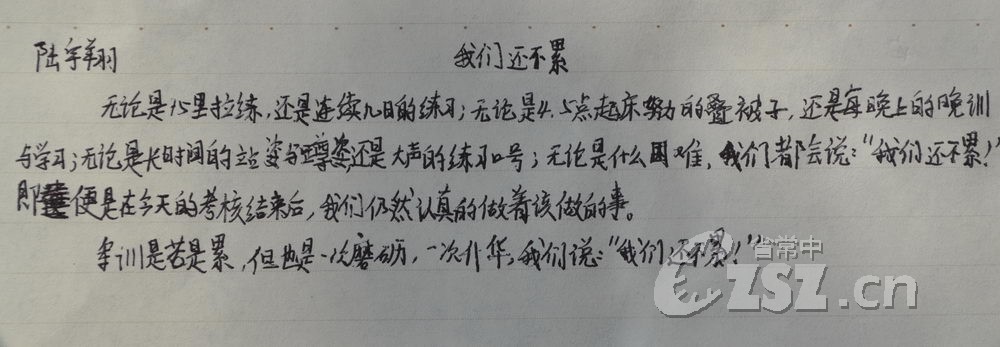 陆宇翔 我们还不累
无论是15里拉练,还是连续几日的练习;无论是4.5点起床努力的叠被子,还是每晚上的晚训
与学习;无论是长时间的站姿与蹲姿还是大声的练习口号;无论是什么困难,我们都会说:“我们还不累!”
即便是在今天的考核结束后,我们仍然认真的做着该做的事。
军训是苦是累,但也是一次磨砺,一次升华,我们说:“我们还不累!”
省常中
CZSZ.cn